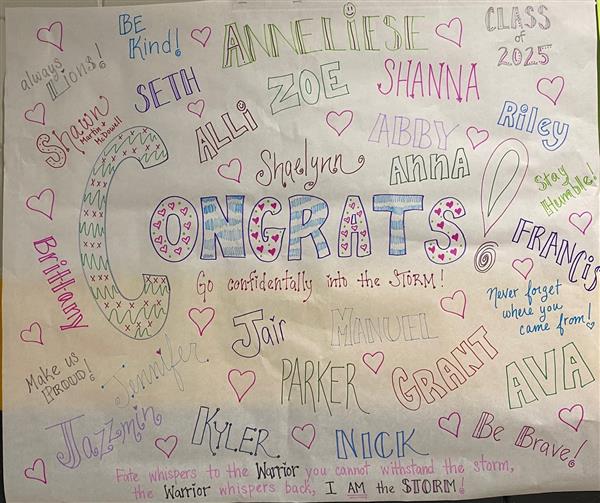 BE Kind!
ANNELIESE
CLASS of 2025
always Lions!
SETH
ZOE
SHANNA
Shawn
Martin + McDowell
ALLI
ABBY
Riley
Shaelynn
ANNA
Stay Humble!
CONGRATS!
Brittany
FRANCIS
Go confidentally into the STORM!
Never forget
where you
came from!
Jair
MANUEL
Make us PROUD!
Jennifer
PARKER
GRANT
AVA
Jazzmin
KYLER
NICK
Be Brave!
Fate whispers to the Warrior you cannot withstand the storm,
the Warrior whispers back, I AM the STORM!